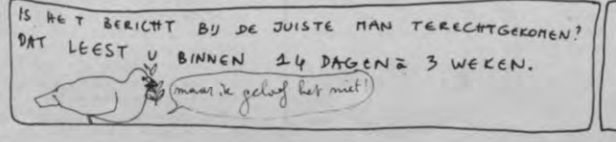 IS HET BERICHT BIJ DE JUISTE MAN TERECHTGEKOMEN?
DAT LEEST U BINNEN 14 DAGEN à 3 WEKEN.
maar ik geloof het niet!